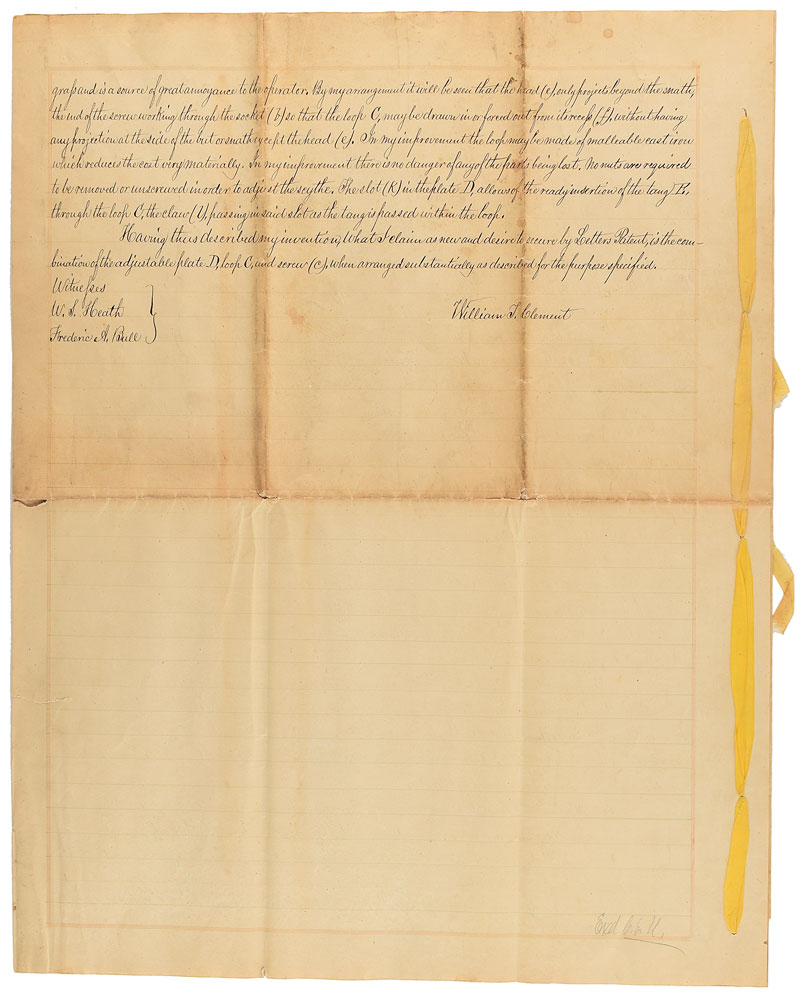 grass and is a source of great annoyance to the operator. By my arrangement it will be seen that the head (e), only projects beyond the snath,
the end of the screw working through the socket (b) so that the loop C, may be drawn in or forced out from a recess (f), without having
any projection at the side of the but or snath except the head (e). In my improvement the loop may be made of malleable cast iron
which reduces the cost very materially. In my improvement there is no danger of any of the parts being lost. No nuts are required
to be removed or unscrewed in order to adjust the scythe. The slot (k) in the plate D, allows of the ready insertion of the tang B,
through the loop C, the claw (l), passing in said slot as the tang is passed within the loop.
Having thus described my invention, What I claim as new and desire to secure by Letters Patent, is the com-
bination of the adjustable plate D, loop C, and screw (c), when arranged substantially as described for the purpose specified.
Witnesses
W. S. Heath
William T. Clement
Frederic A. Bull